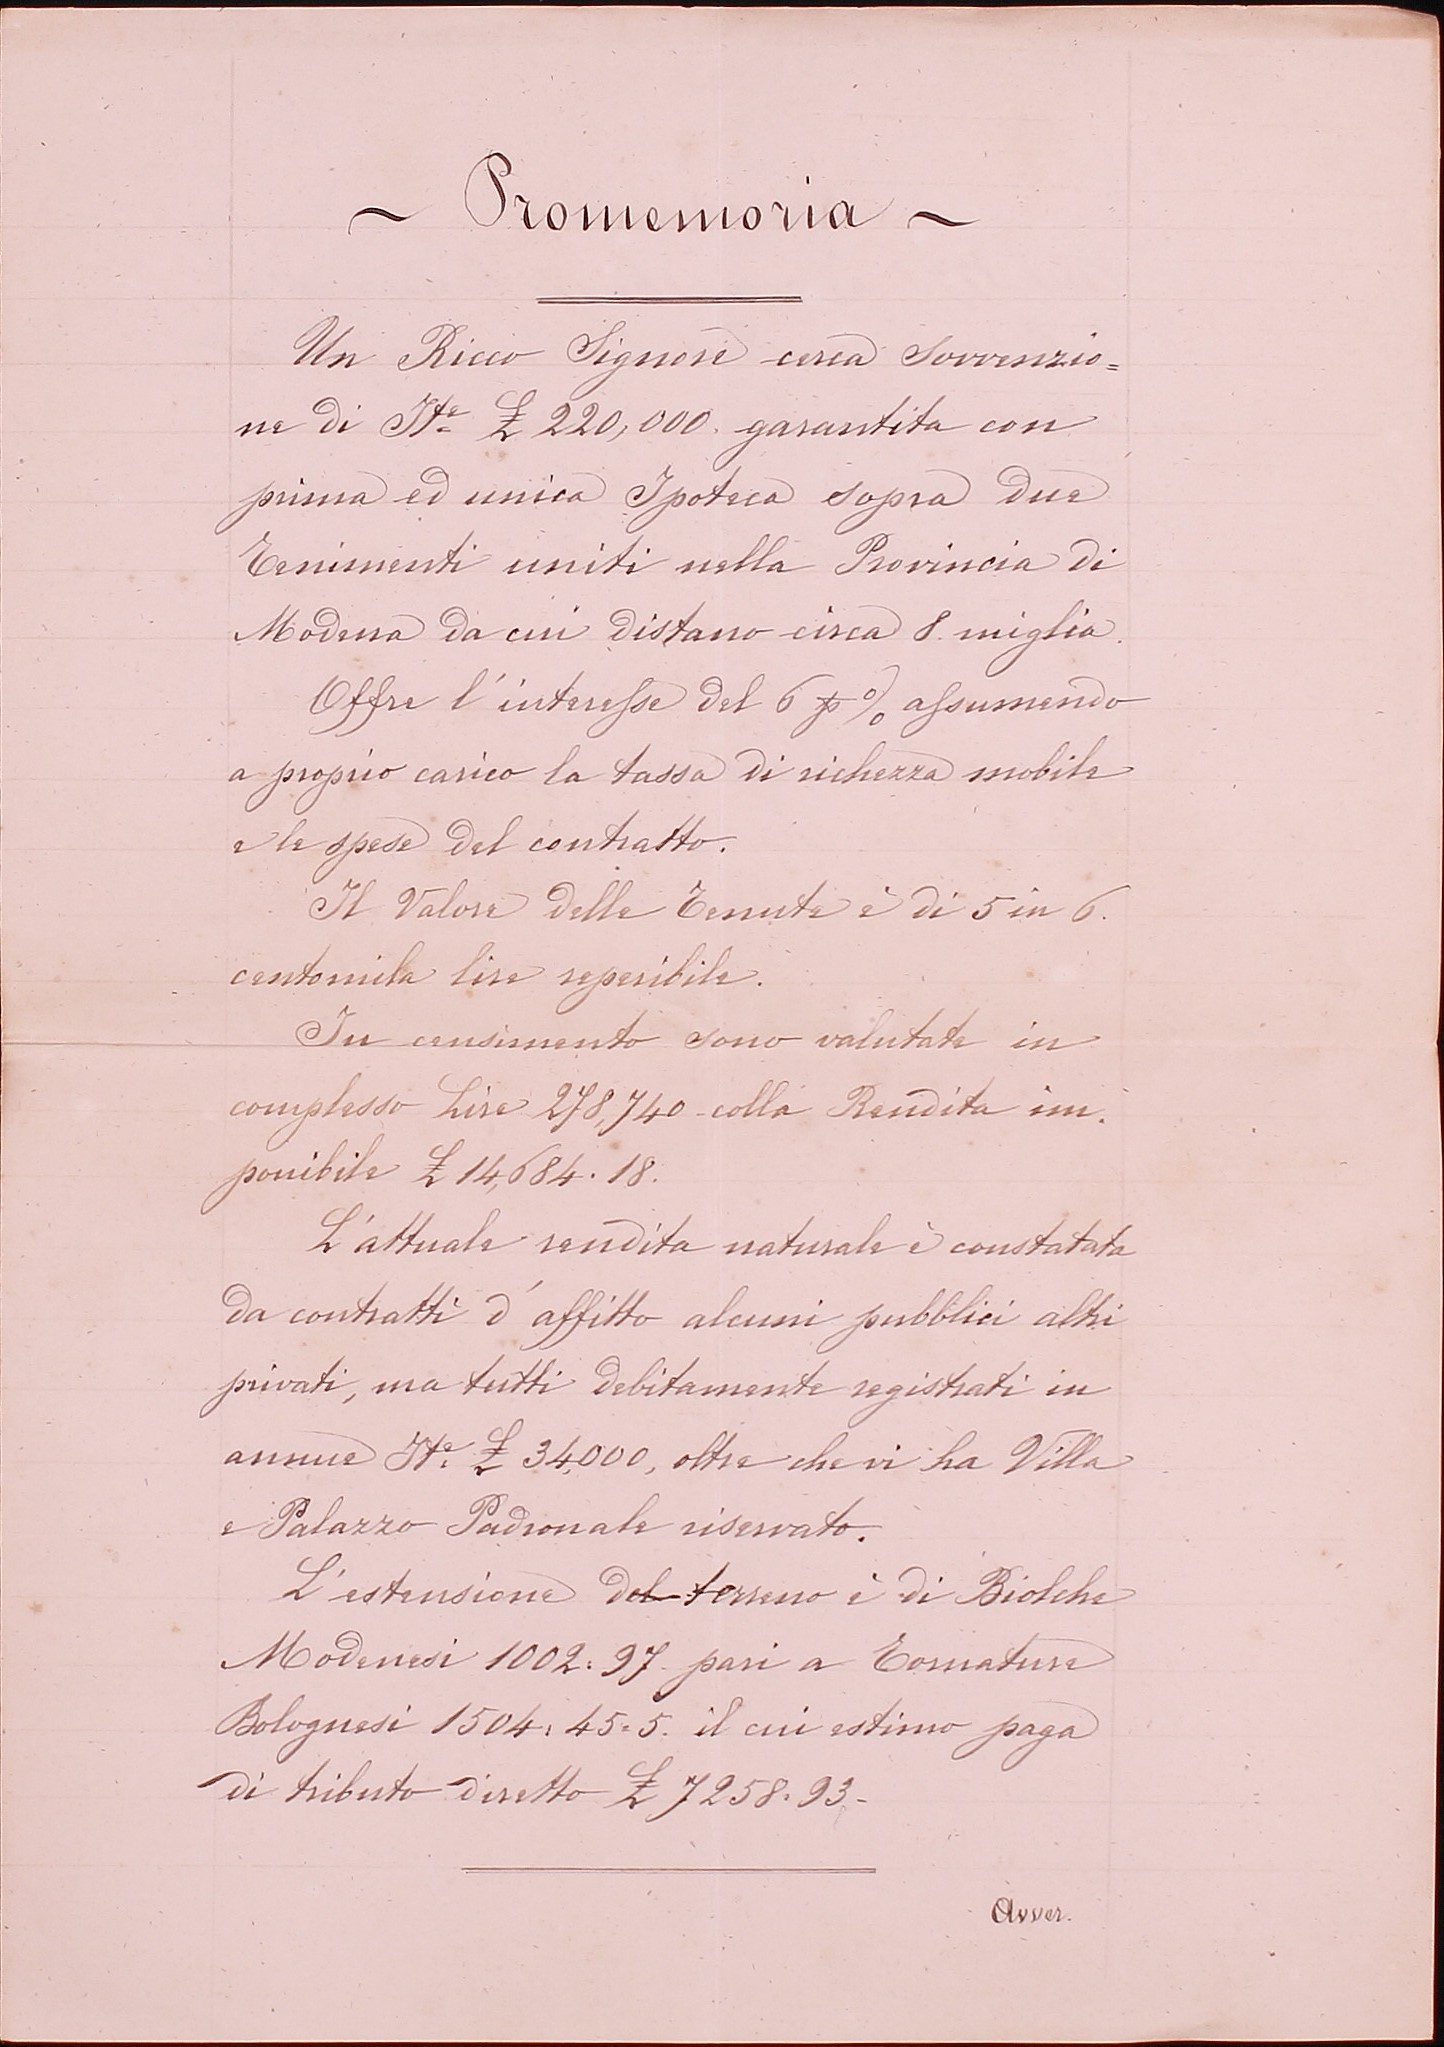 ~ Promemoria ~
Un Ricco Signore cerca Sovvenzio=
ne di Ite £ 220,000. garantita con
prima ed unica Ipoteca sopra due
Tenimenti uniti nella Provincia di
Modena da cui distano circa 8. miglia.
Offre l'interesse del 6 p % assumendo
a proprio carico la tassa di richezza mobile
e le spese del contratto.
Il Valore delle Tenute è di 5 in 6.
centomila lire reperibile.
In censimento sono valutate in
complesso Lire 278,740 colla Rendita im.
ponibile £ 14,684.18.
L'attuale rendita naturale è constatata
da contratti d'affitto alcuni pubblici altri
privati, ma tutti debitamente registrati in
annue Ite £ 34,000, oltre che vi ha Villa
e Palazzo Padronale riservato.
L'estensione del terreno è di Biolche
Modenesi 1002:97. pari a Tornature
Bolognesi 1504:45:5. il cui estimo paga
di tributo diretto £ 7258.93-
Avver.